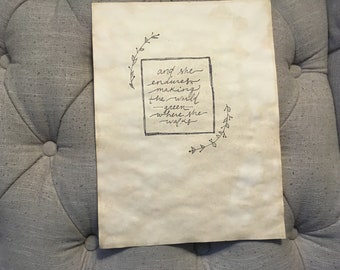 and she
endures
making
the world
green
where she
walks